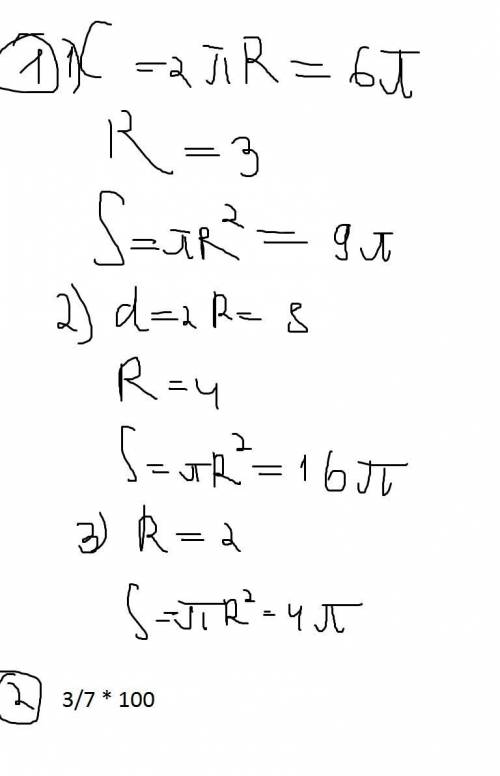 1 1) C = 2πR = 6π
R = 3
S = πR² = 9π
2) d = 2R = 8
R = 4
S = πR² = 16π
3) R = 2
S = πR² = 4π
2 3/7 * 100